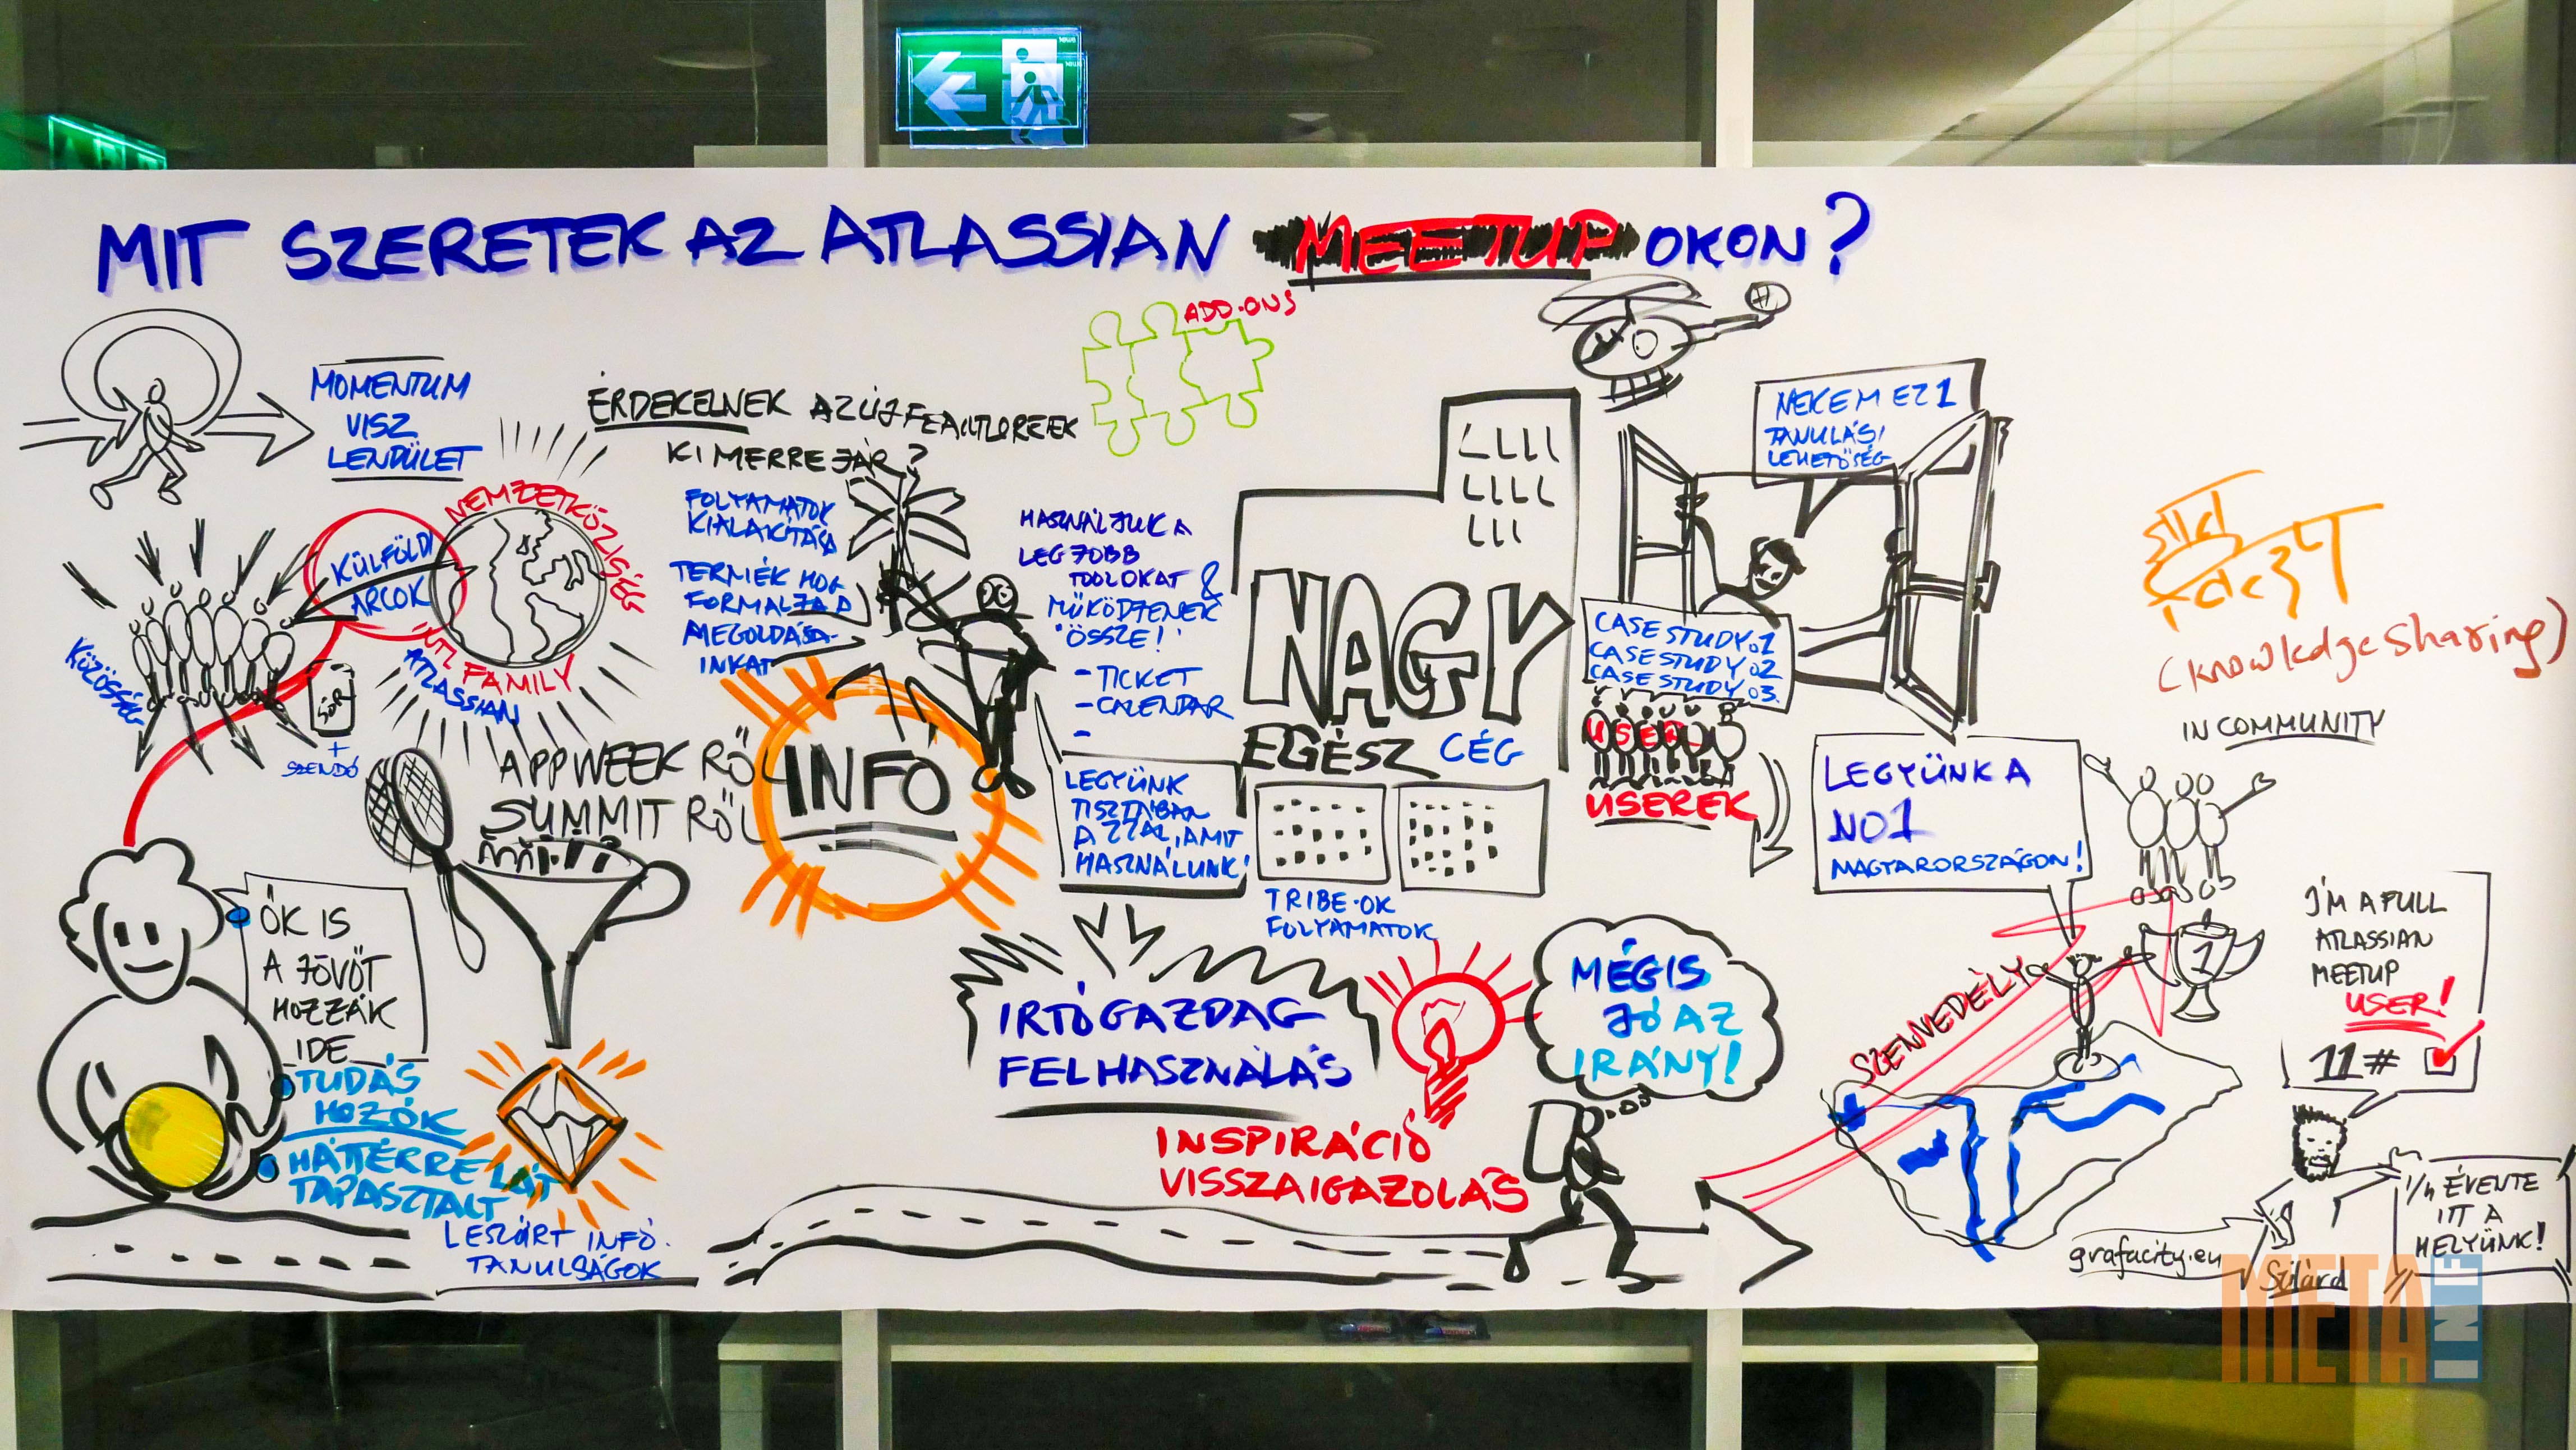 MIT SZERETEK AZ ATLASSIAN MEETUP OKON?
ADD-ONS
MOMENTUM
VISZ
LENDÜLET
ÉRDEKELNEK AZ ÚJ FEAUTUREEK
KI MERRE JÁR?
NEMZETKÖZISÉG
KÜLFÖLDI
ARCOK
INTL FAMILY
ATLASSIAN
KÖZÖSSÉG
SÖR
+
SZENDÓ
FOLYAMATOK
KIALAKÍTÁSA
TERMÉK HOG
FORMALJA A
MEGOLDÁSA-
INKAT
HASZNÁLJUK A
LEGJOBB
TOOLOKAT &
MŰKÖDJENEK
ÖSSZE!
- TICKET
- CALENDAR
-
APPWEEK RŐL
SUMMIT RŐL
INFO
LEGYÜNK
TISZTÁBAN
AZZAL, AMIT
HASZNÁLUNK!
NAGY
EGÉSZ CÉG
TRIBE-OK
FOLYAMATOK
NEKEM EZ 1
TANULÁSI
LEHETŐSÉG
CASE STUDY.1
CASE STUDY.02
CASE STUDY.03.
USER
USEREK
(Knowledge Sharing)
IN COMMUNITY
LEGYÜNK A
NO1
MAGYARORSZÁGON!
ŐK IS
A JÖVŐT
HOZZÁK
IDE
TUDÁS
HOZÓK
HÁTTÉRRE LÁT
TAPASZTALT
LESZŰRT INFÓ.
TANULSÁGOK
IRTÓ GAZDAG
FELHASZNÁLÁS
INSPIRÁCIÓ
VISSZAIGAZOLÁS
MÉGIS
JÓ AZ
IRÁNY!
SZENVEDÉLY
1
I'M A FULL
ATLASSIAN
MEETUP
USER!
11#
1/4 ÉVENTE
ITT A
HELYÜNK!
grafacity.eu
Szilárd
META
INF